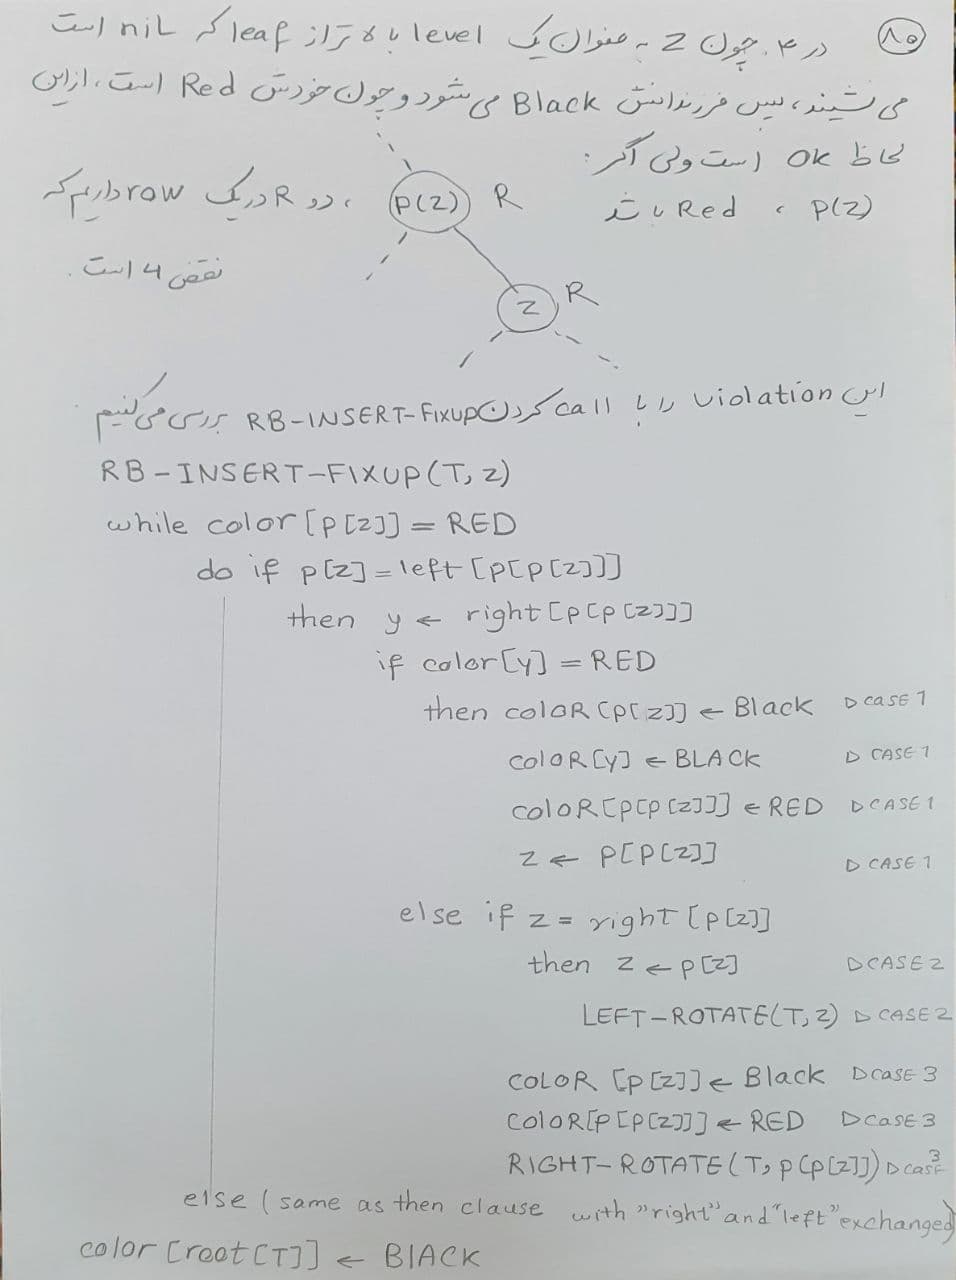 ۸۰
در ۴. چون Z به عنوان یک level بالاتر از leaf که nil است
می نشیند، پس فرزندانش Black می شود و چون خودش Red است، از این
لحاظ OK است ولی اگر:
p(z) ، Red باشد
p(z) R ، دو R در یک row داریم که
نقض 4 است.
z R
این violation را با call کردن RB-INSERT-FIXUP بررسی می کنیم.
RB-INSERT-FIXUP(T, z)
while color[p[z]] = RED
do if p[z] = left[p[p[z]]]
then y ← right[p[p[z]]]
if color[y] = RED
then coloR[p[z]] ← Black ▷ case 1
coloR[y] ← BLACK ▷ CASE 1
coloR[p[p[z]]] ← RED ▷ CASE 1
z ← p[p[z]] ▷ CASE 1
else if z = right[p[z]]
then z ← p[z] ▷ CASE 2
LEFT-ROTATE(T, z) ▷ CASE 2
COLOR [p[z]] ← Black ▷ case 3
Color[p[p[z]]] ← RED ▷ case 3
RIGHT-ROTATE(T, p[p[z]]) ▷ case 3
else (same as then clause with "right" and "left" exchanged)
color [root[T]] ← BLACK